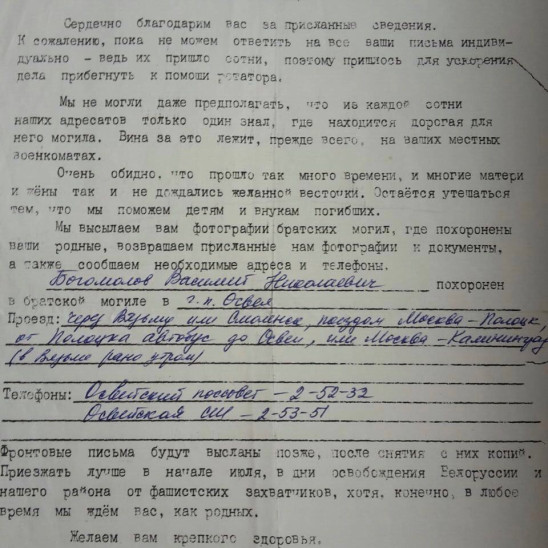 Сердечно благодарим вас за присланные сведения.
К сожалению, пока не можем ответить на все ваши письма индиви-
дуально - ведь их пришло сотни, поэтому пришлось для ускорения
дела прибегнуть к помощи ротатора.
Мы не могли даже предполагать, что из каждой сотни
наших адресатов только один знал, где находится дорогая для
него могила. Вина за это лежит, прежде всего, на ваших местных
военкоматах.
Очень обидно, что прошло так много времени, и многие матери
и жёны так и не дождались желанной весточки. Остаётся утешаться
тем, что мы поможем детям и внукам погибших.
Мы высылаем вам фотографии братских могил, где похоронены
ваши родные, возвращаем присланные нам фотографии и документы,
а также сообщаем необходимые адреса и телефоны.
Богомолов Василий Николаевич похоронен
в братской могиле в г.п. Освея
Проезд: через Вязьму или Смоленск, поездом Москва - Полоцк,
от Полоцка автобус до Освеи, или Москва - Калининград
(в Вязьме рано утром)
Телефоны: Освейский поссовет - 2-52-32
Освейская СШ - 2-53-51
Фронтовые письма будут высланы позже, после снятия с них копий.
Приезжать лучше в начале июля, в дни освобождения Белоруссии и
нашего района от фашистских захватчиков, хотя, конечно, в любое
время мы ждём вас, как родных.
Желаем вам крепкого здоровья.